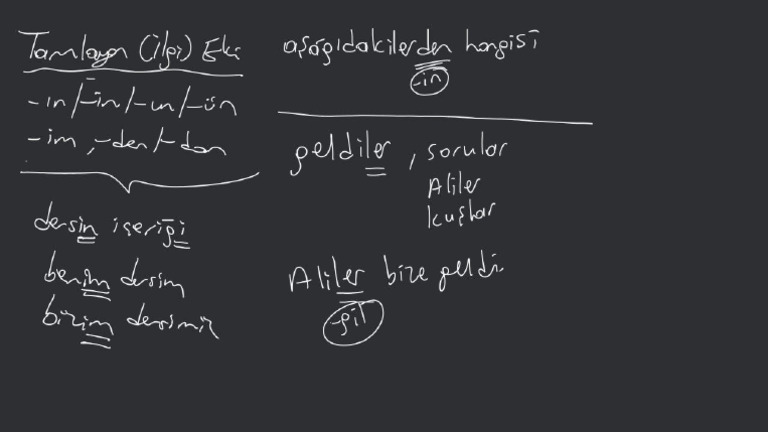 Tamlayan (ilgi) Eki
-ın/-in/-un/-ün
-im, -den/-dan
dersin içeriği
benim dersim
bizim dersimiz
aşağıdakilerden hangisi
-in
geldiler, sorular
Aliler
kuşlar
Aliler bize geldi
-gil